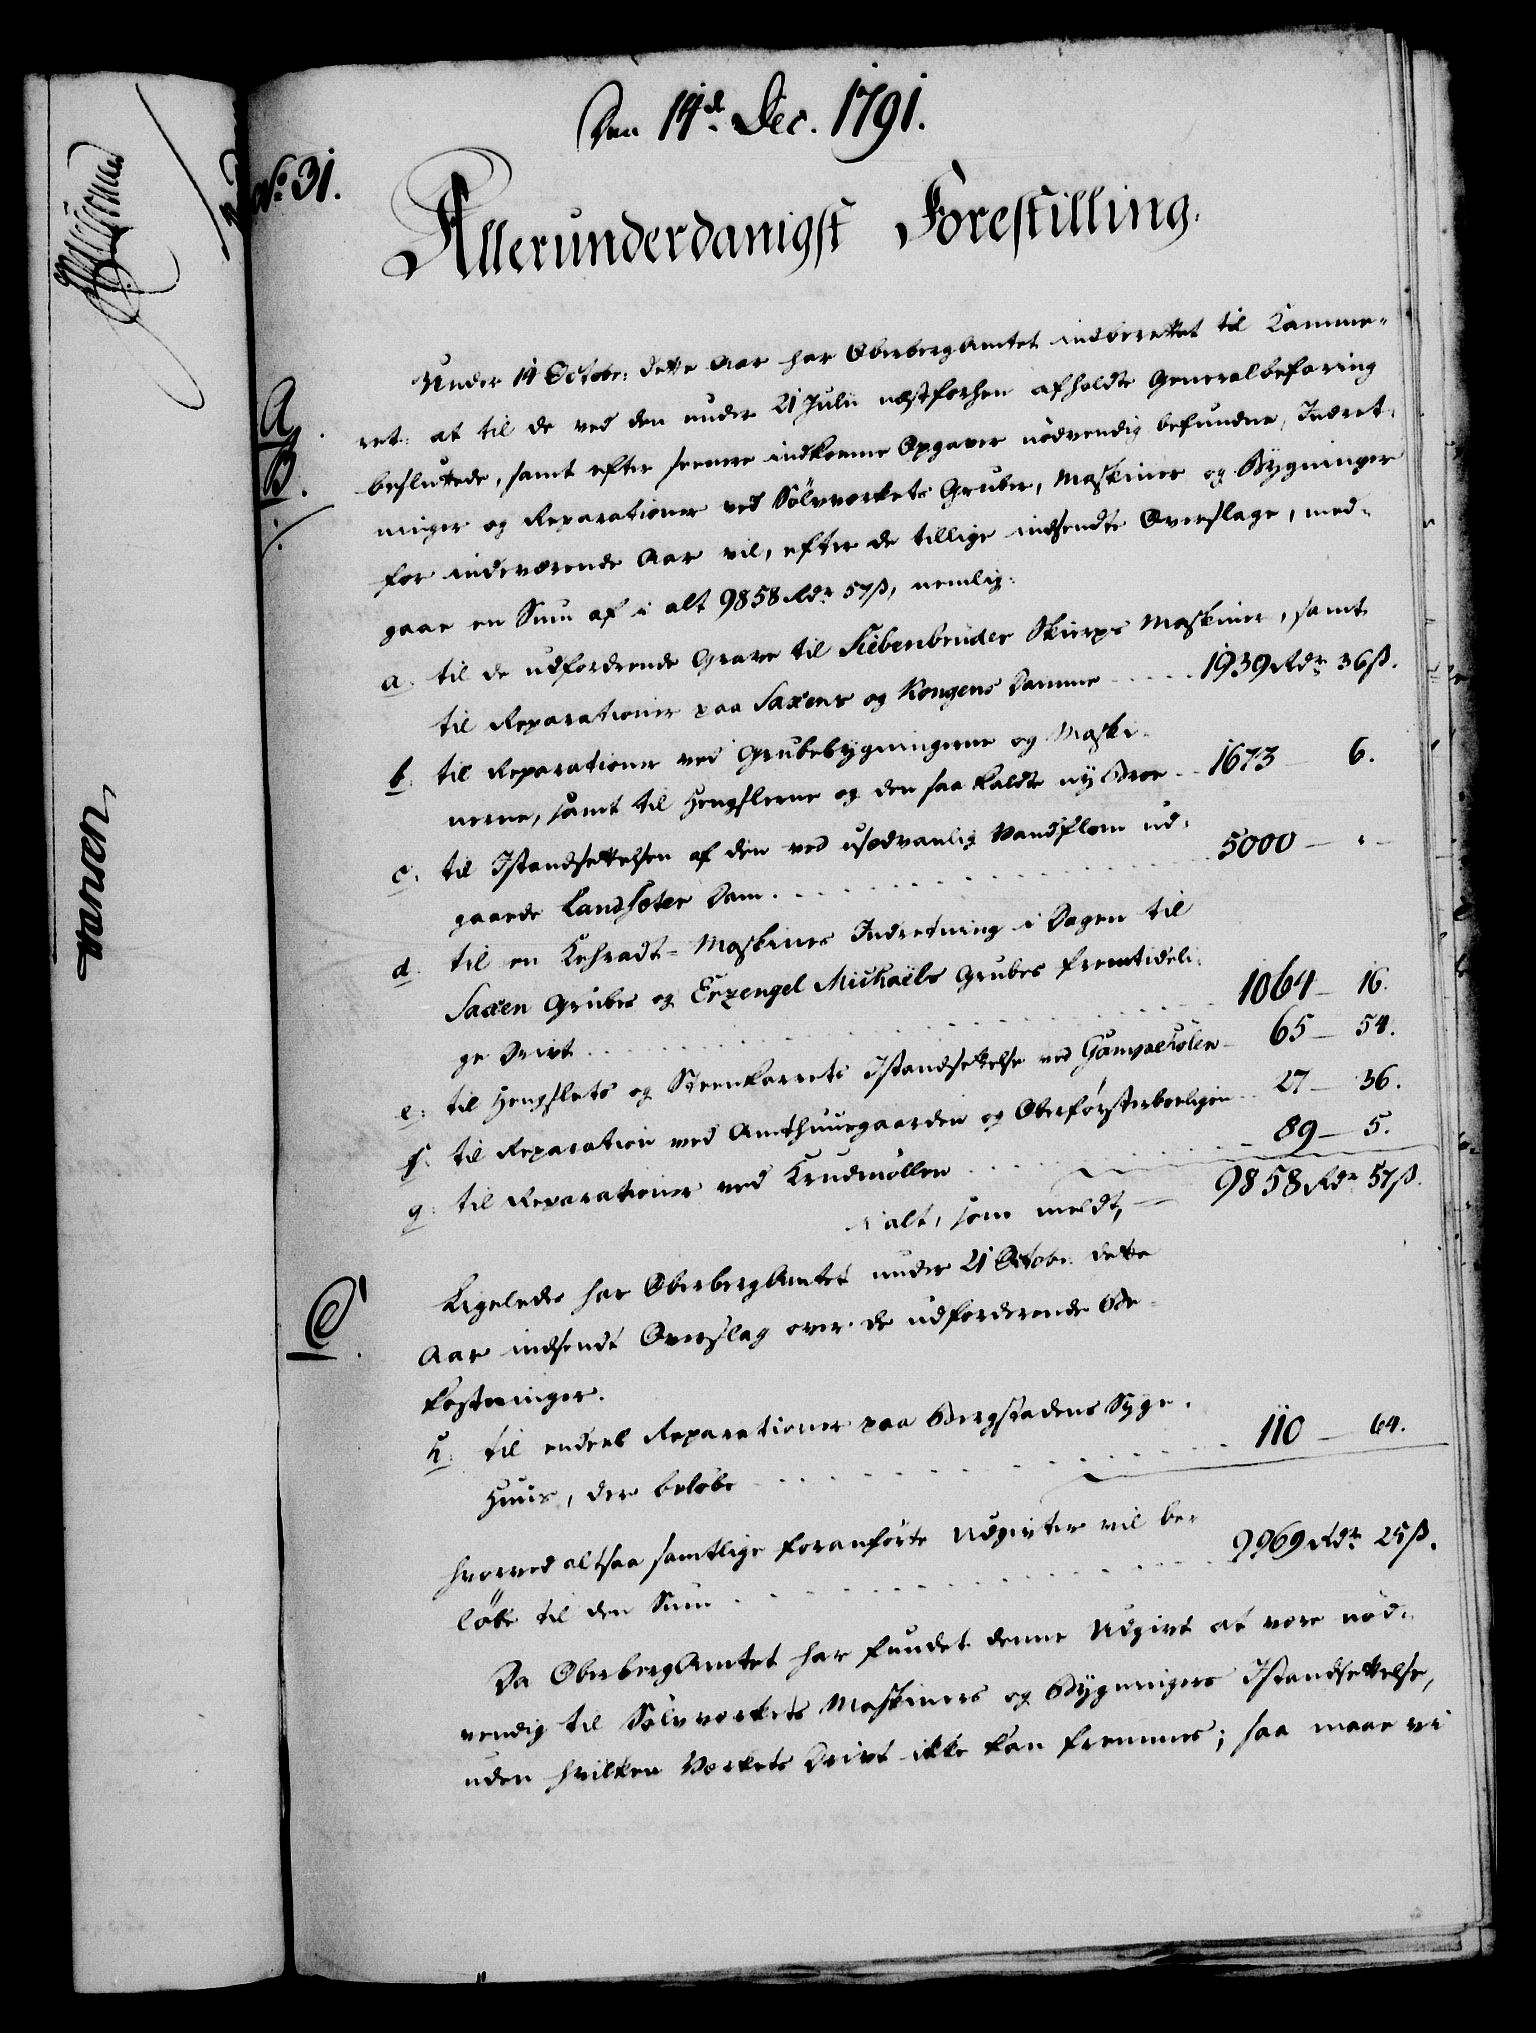 Den 14d. Dec. 1791.
No. 31.
Allerunderdanigst Forestilling.
Under 14 Octobr. dette Aar har OberbergAmtet indberettet til Kamme-
A.
ret: at til de ved den under 21 Julii næstforhen afholdte Generalbefaring
B.
besluttede, samt efter senere indkomne Opgaver nödvendig befundne, Indret-
ninger og Reparationer ved Sölvverkets Gruber, Maskiner og Bygninger
for indeværende Aar vil, efter de tillige indsendte Overslage, med-
gaae en Sum af i alt 9858 Rdr 57 ß, nemlig:
a. til de udfordrende Grave til Siebenbrüder Skierps Maskiner, samt
til Reparationer paa Saxens og Kongens Damme ..... 1939 Rdr 36 ß.
b. til Reparationer ved Grubebygningerne og Maski-
nerne, samt til Hengslerne og den saa kaldte nye Broe .. 1673 — 6.
c. til Istandsettelsen af den ved usædvanlig Vandflom ud-
gaaede Landsoter Dam ..... 5000 — " —
d. til en Kehradt-Maskines Indretning i Dagen til
Saxen Grubes og Erzengel Michaëls Grubes fremtideli-
ge Drivt ..... 1064 — 16.
e: til Hengslets og Steenkarrets Istandsettelse ved — 65 — 54.
f: til Reparation ved Amthuusgaarden og Oberförsterboeligen .. 27 — 36.
g: til Reparationer ved Krudmöllen ..... 89 — 5.
i alt, som meldt, — 9858 Rdr 57 ß.
C.
Ligeledes har OberbergAmtet under 21 Octobr. dette
Aar indsendt Overslag over de udfordrende Be-
kostninger.
h. til endeel Reparationer paa Bergstadens Syge-
Huus, der beløbe ..... 110 — 64.
hvorved altsaa samtlige foranförte Udgivter vil be-
löbe til den Sum ..... 9969 Rdr 25 ß.
Da OberbergAmtet har fundet denne Udgivt at være nöd-
vendig til Sölvverkets Maskiners og Bygningers Istandsettelse,
uden hvilken Verkets Drivt ikke kan fremmes; saa maae vi